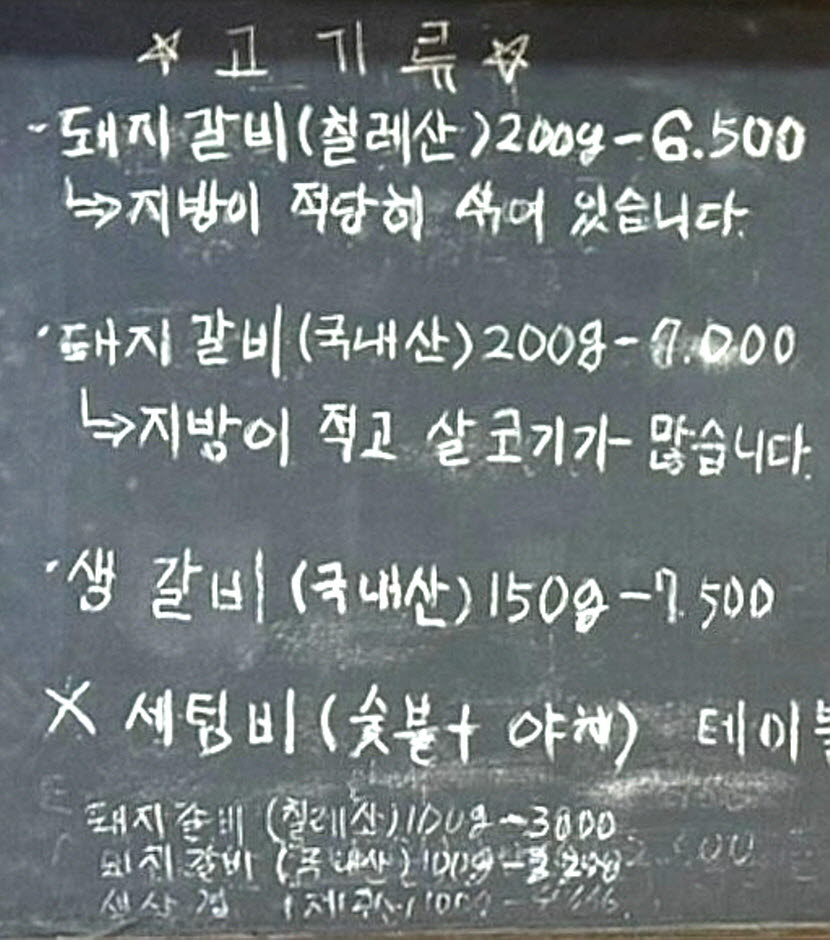 ☆ 고 기 류 ☆
· 돼지갈비(칠레산)200g-6.500
↳지방이 적당히 섞여 있습니다.
· 돼지갈비(국내산)200g-7.000
↳지방이 적고 살코기가 많습니다.
· 생갈비(국내산)150g-7.500
X 세팅비(숯불+야채) 테이블
돼지갈비(칠레산)100g-3000
돼지갈비(국내산)100g